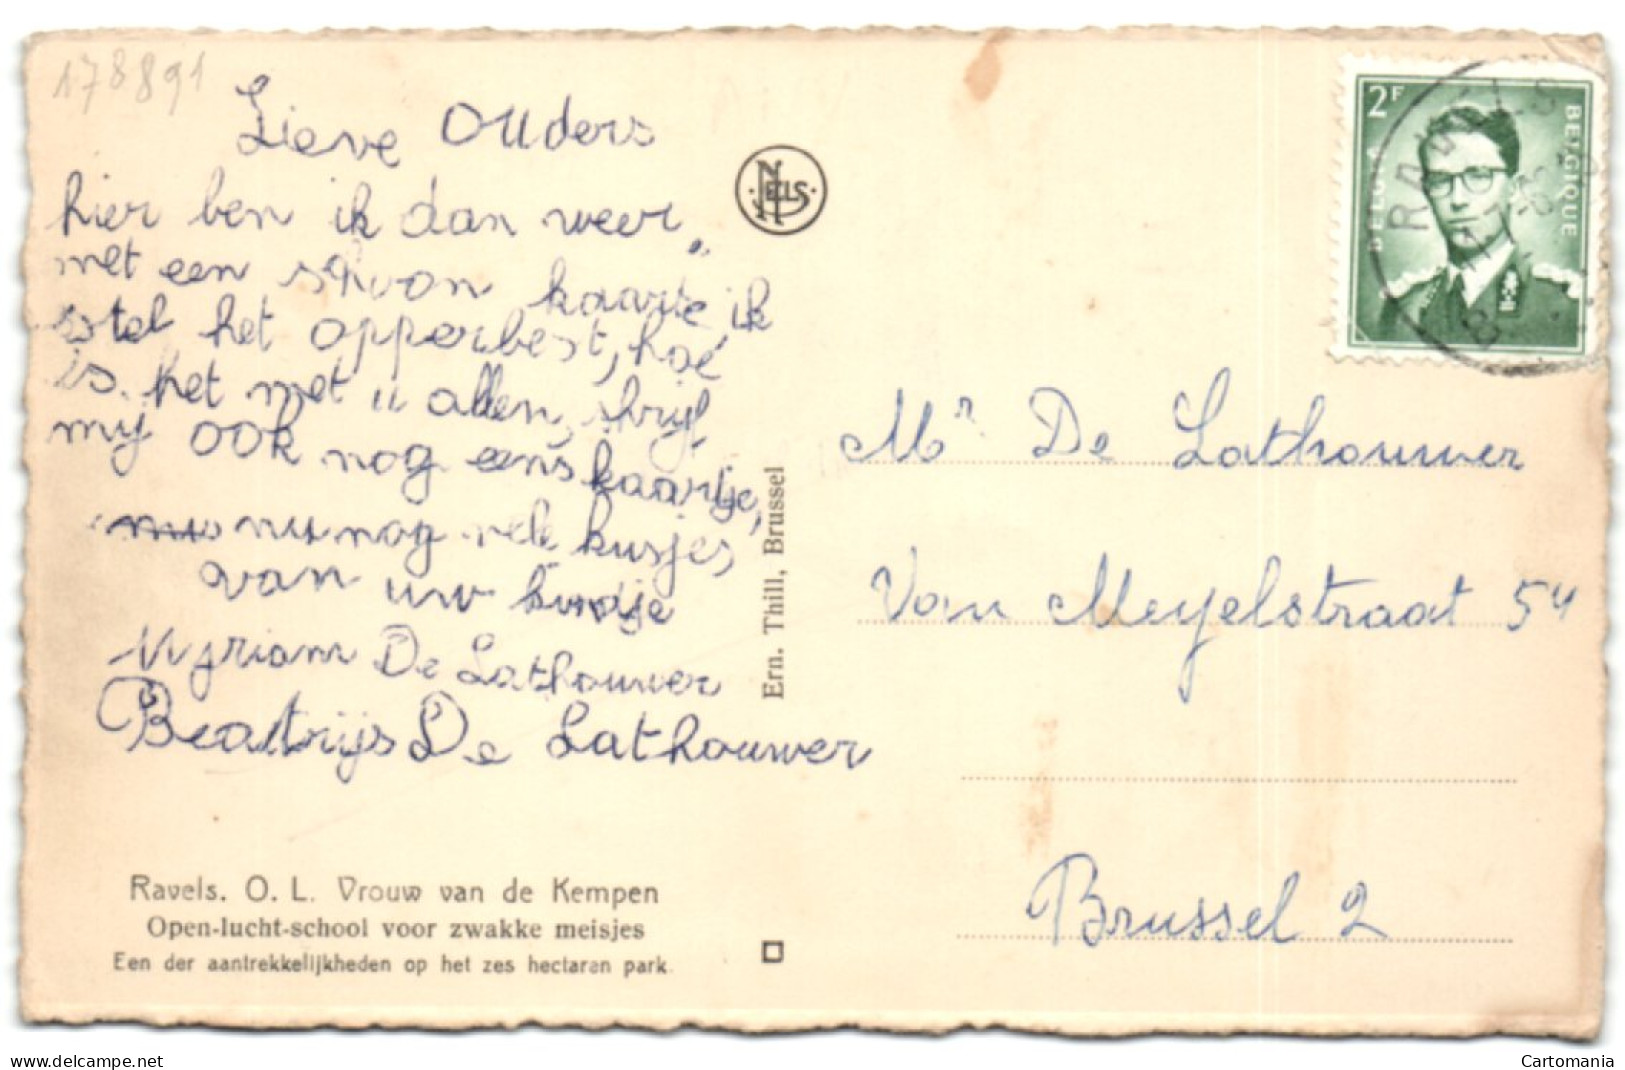 178891
Lieve Ouders
hier ben ik dan weer
met een schoon kaartje, ik
stel het opperbest, hoe
is het met u allen, schrijf
mij ook nog eens kaartje,
nu nog vele kusjes
van uw kindje
Myriam De Lathouwer
Beatrijs De Lathouwer
Ravels. O. L. Vrouw van de Kempen
Open-lucht-school voor zwakke meisjes
Een der aantrekkelijkheden op het zes hectaren park.
NELS
Ern. Thill, Brussel
2F
BELGIË
BELGIQUE
RAVELS
Mr De Lathouwer
Van Meyelstraat 54
Brussel 2
www.delcampe.net
Cartomania